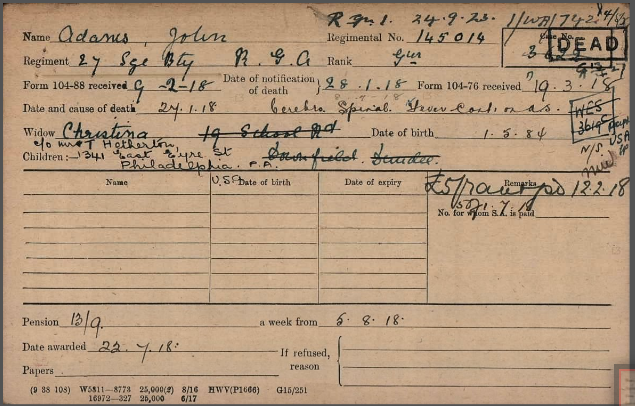 R Gn 1. 24.9.23. 1/WA/1742
Name Adams, John Regimental No. 145014 Case No.
Regiment 27 Sge Bty R.G.A Rank Gnr DEAD
Form 104-88 received 9-2-18 Date of notification of death 28.1.18 Form 104-76 received 19.3.18
Date and cause of death 27.1.18 Cerebro Spinal Fever
Widow Christina 19 School Rd Date of birth 1.5.84
c/o Mrs T Hetherton,
Children: 1341 East Eyre St Downfield. Dundee.
Philadelphia. P.A.
U.S.A
Name Date of birth Date of expiry Remarks
£5 12.2.18
No. for whom S.A. is paid
WFS
USA
N/S
Pension 13/9. a week from 5.8.18.
Date awarded 22.7.18.
Papers If refused, reason
(9 38 108) W5811—8773 25,000(2) 8/16 HWV(P1666) G15/251
16972—327 25,000 6/17